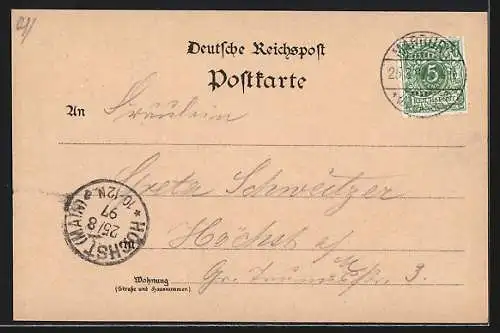 Deutsche Reichspost
Postkarte
An Fräulein
Greta Schweitzer
Höchst a/M
3.
Wohnung
(Straße und Hausnummer)
HÖCHST (MAIN)
25/8
97
10-12N.
MARBURG
5